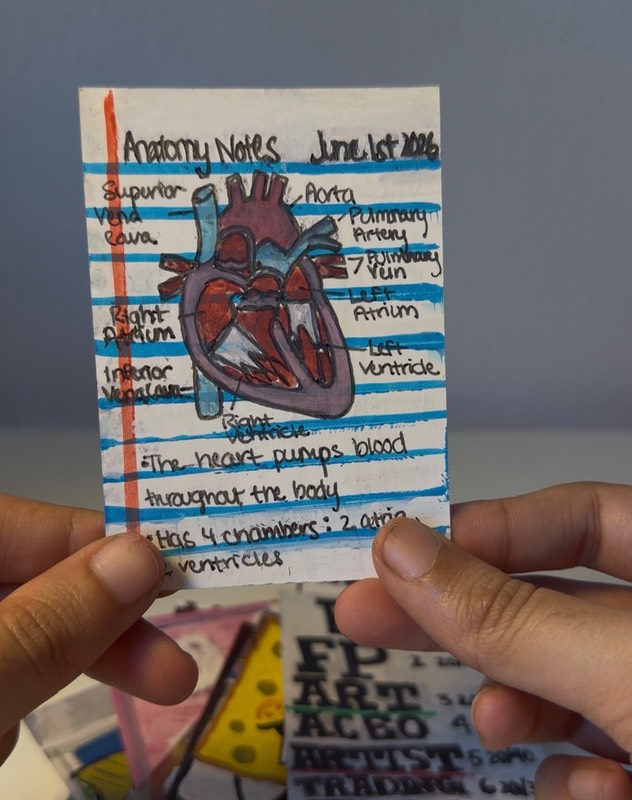 Anatomy Notes June 1st 2026
Superior
Vena
Cava
Aorta
Pulmnary
Artery
Pulmnary
Vein
Left
Atrium
Right
Atrium
Left
Ventricle
Inferior
Vena Cava
Right
Ventricle
•The heart pumps blood
throughout the body
•Has 4 chambers: 2 atria
ventricles
FP 2 20
ART 3
ACEO 4
ARTIST 5 20/40
TRADING 6 20/3